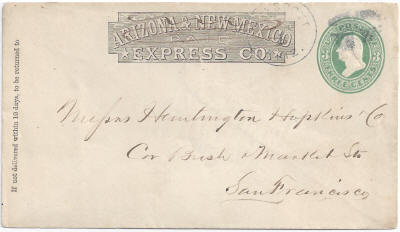 ARIZONA & NEW MEXICO
EXPRESS CO.
U.S. POSTAGE
THREE CENTS
If not delivered within 10 days, to be returned to
Messrs Huntington Hopkins & Co
Cor Bush & Market Sts
San Francisco